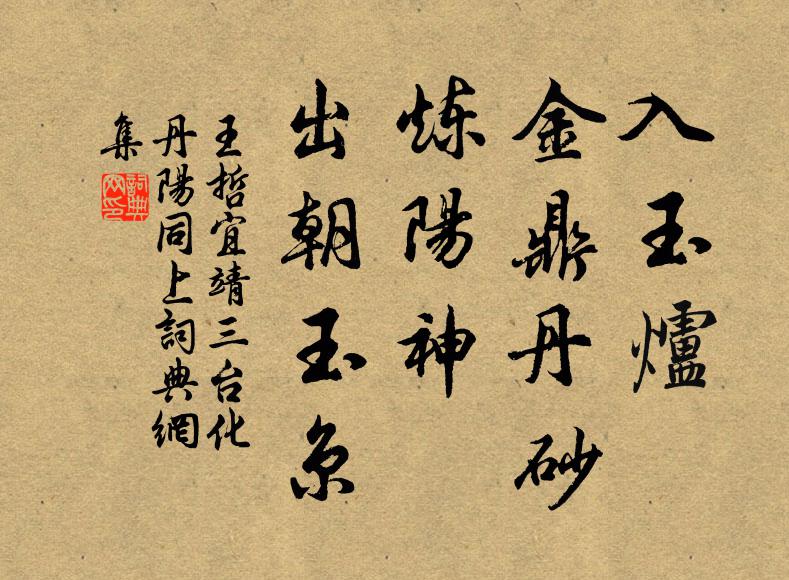 入玉爐
金鼎丹砂
炼陽神
出朝玉京
王哲宜靖三台化
丹陽同上詞典網
集
詞典網印